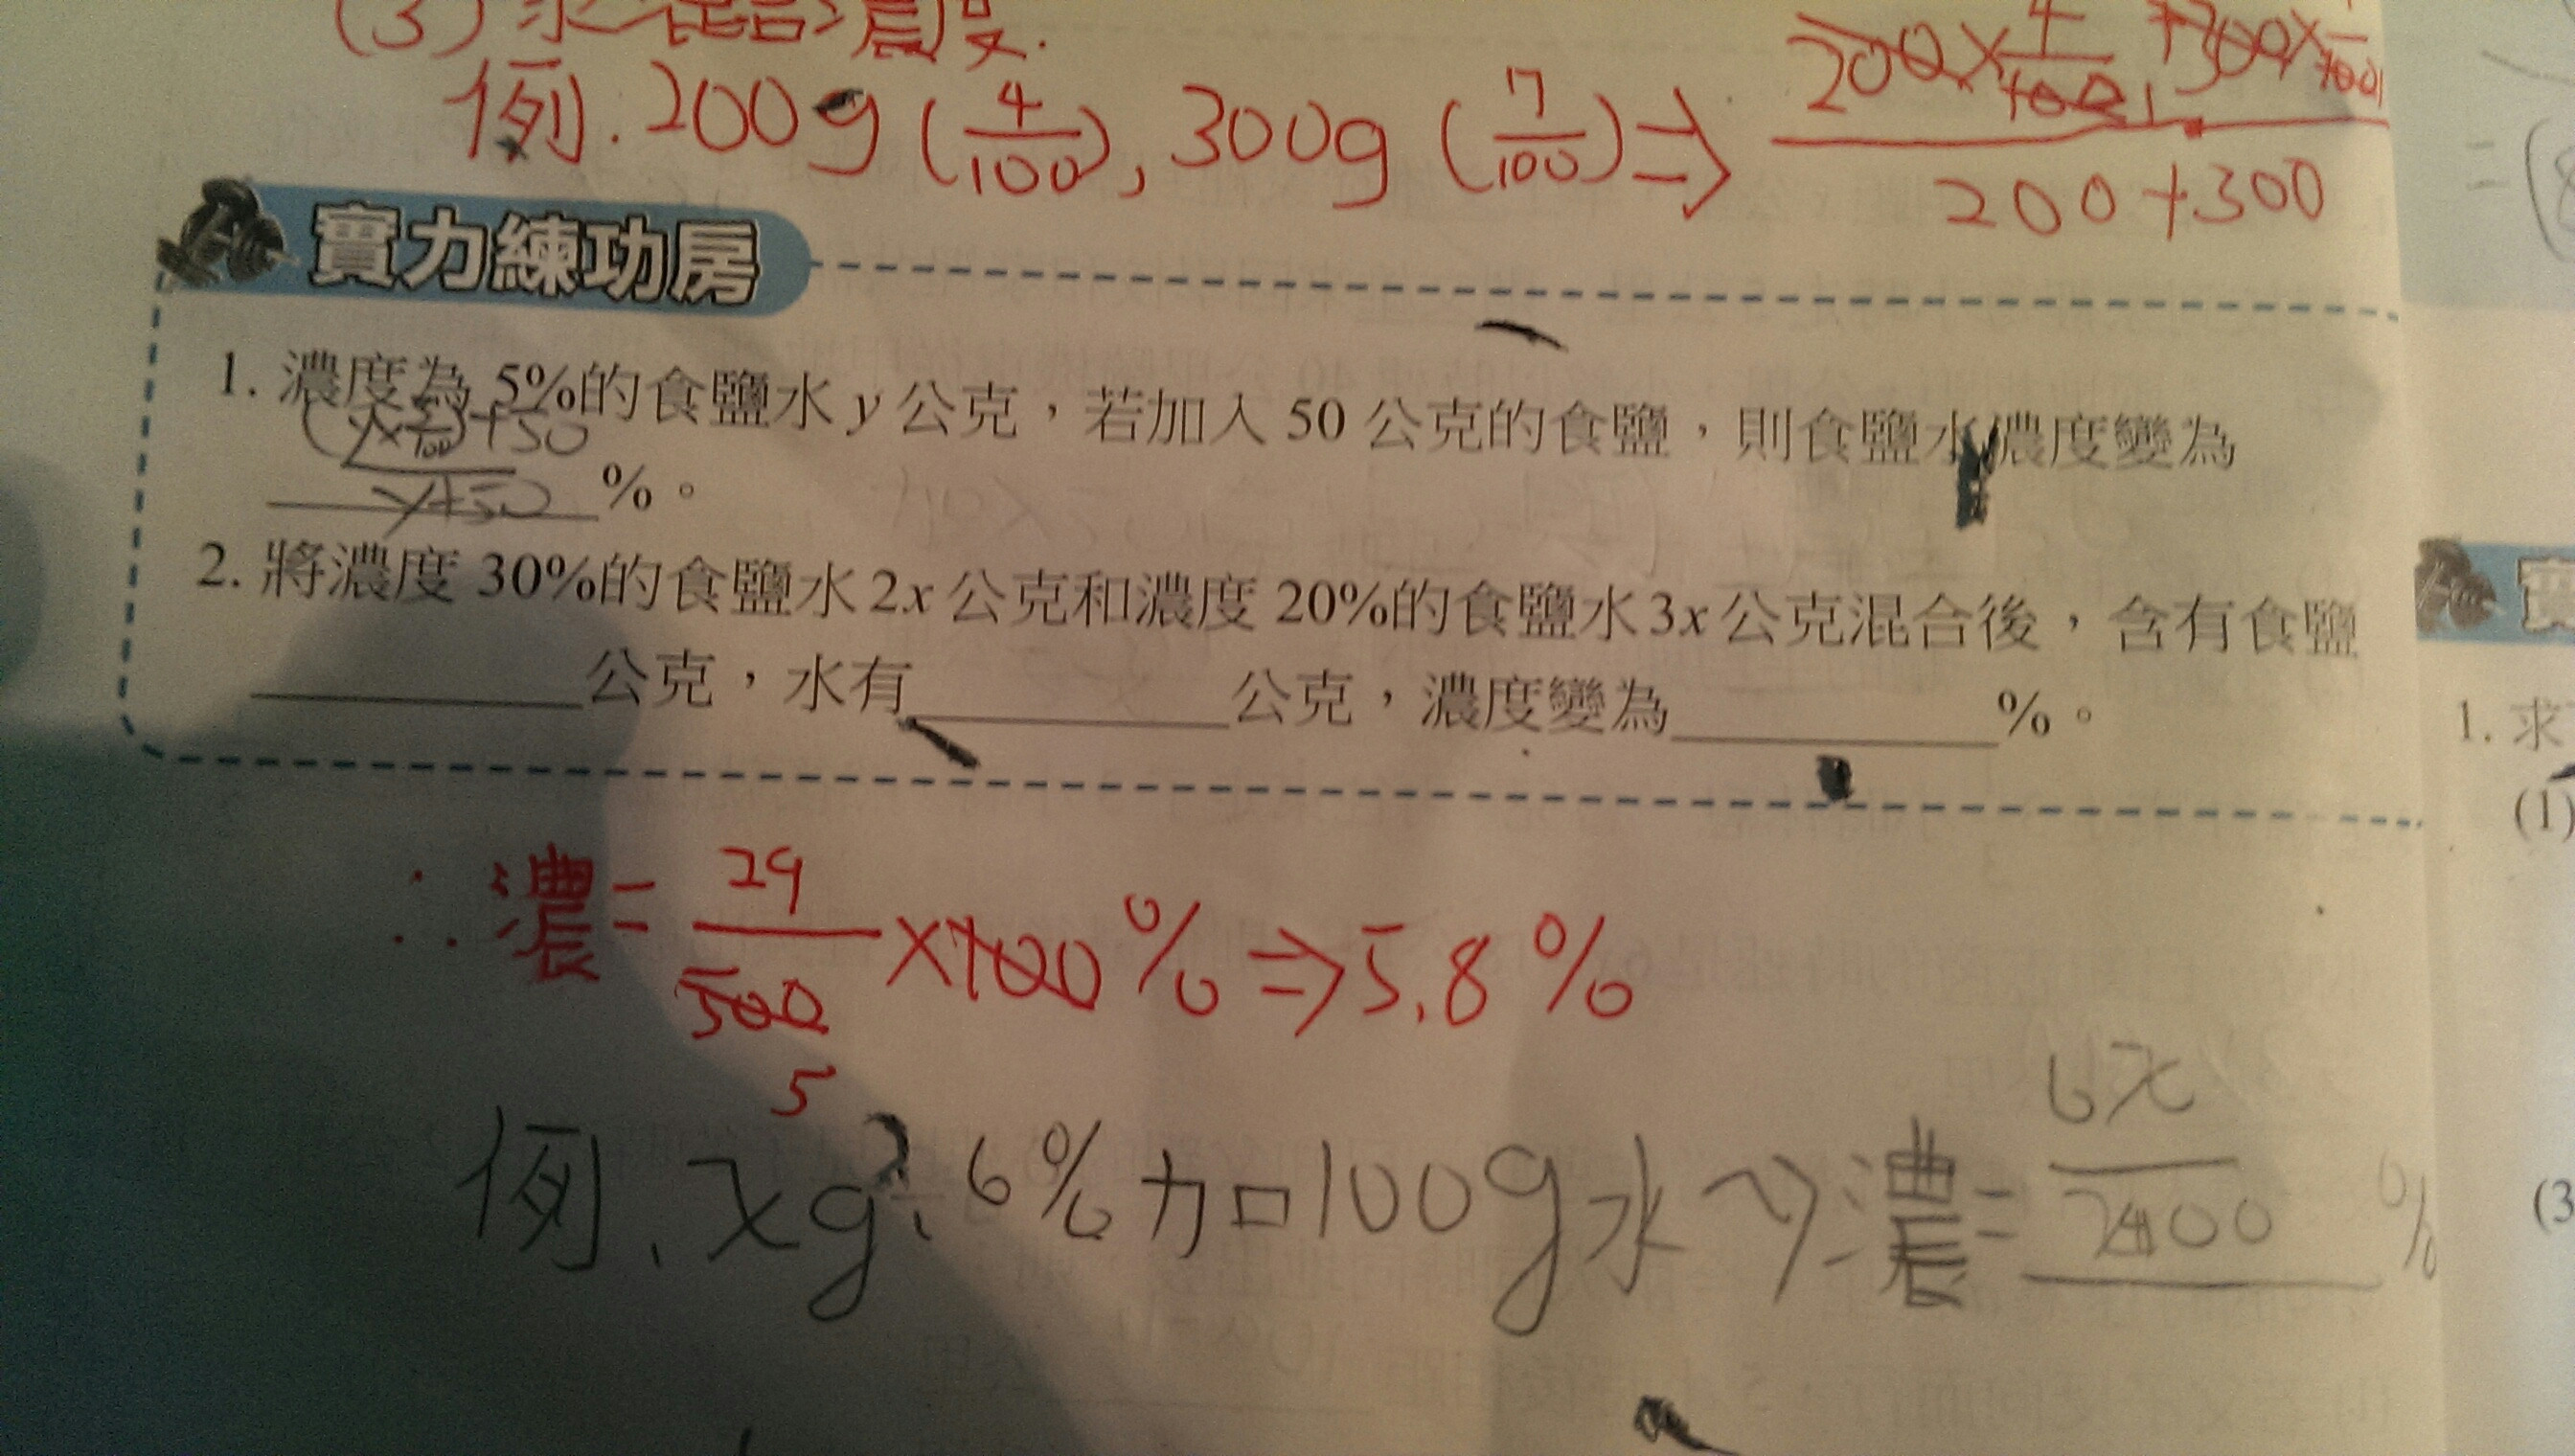 (3) 求混合濃度.
例. 200g (4/100), 300g (7/100) ⇒ 200×4/100+300×7/100 / 200+300
實力練功房
1. 濃度為 5%的食鹽水 y 公克，若加入 50 公克的食鹽，則食鹽水濃度變為
(y×5/100)+50 / y+50 %。
2. 將濃度 30%的食鹽水 2x 公克和濃度 20%的食鹽水 3x 公克混合後，含有食鹽
公克，水有 公克，濃度變為 %。
1. 求
(1)
∴濃=29/500×100%⇒5.8%
5
例. xg, 6% 加100g水⇒濃= 6x %
(3